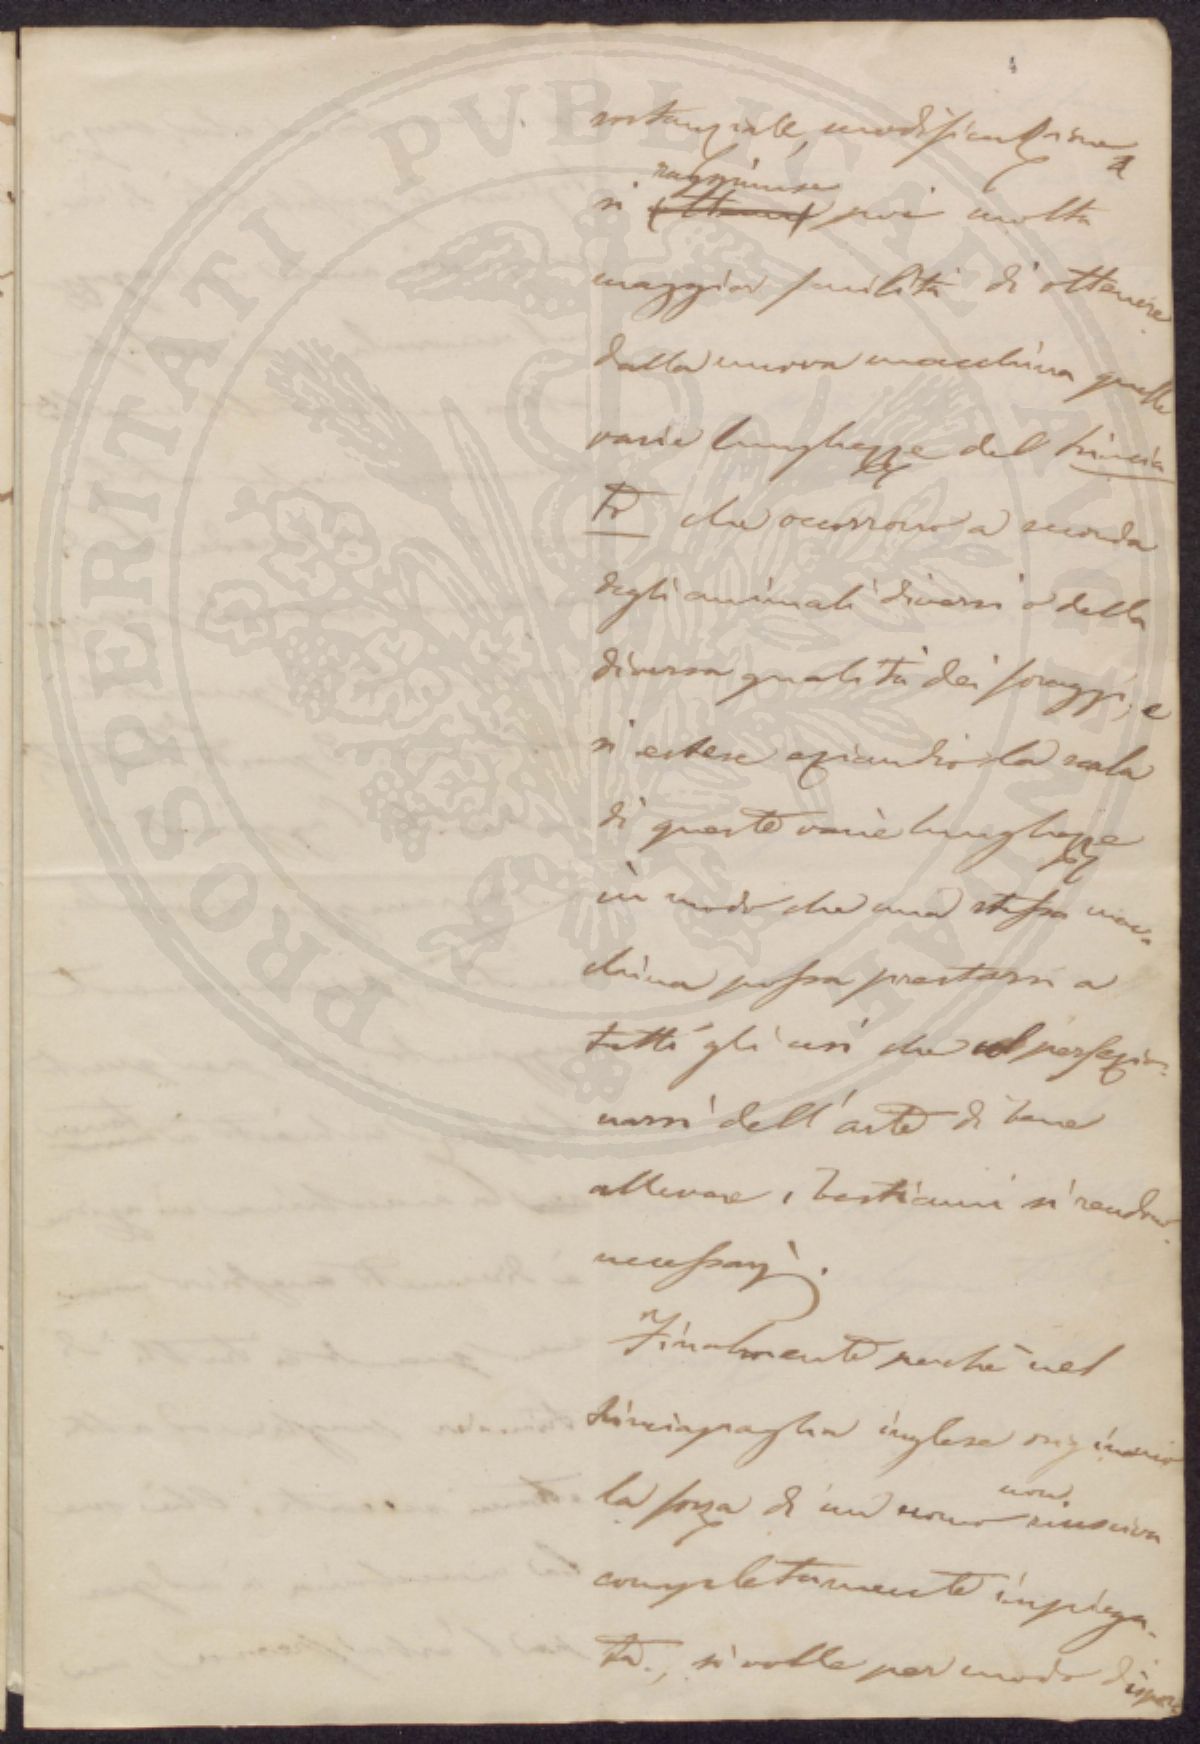 4
sostanziale modificazione
raggiunse
si (ottenne) poi molta
maggior facilità di ottenere
dalla nuova macchina quelle
varie lunghezze del trincia
to che occorrono a seconda
degli animali diversi o della
diversa qualità dei foraggi, e
si estese eziandio la scala
di queste varie lunghezze
in modo che una stessa mac-
china possa prestarsi a
tutti gli usi che nel perfezio-
narsi dell'arte di bene
allevare i bestiami si rendono
necessarj.
Finalmente perchè nel
trinciapaglia inglese originario
non
la forza di un uomo riusciva
completamente impiega-
ta, si volle per modo dispor
PROSPERITATI PVBLICAE AVGENDAE